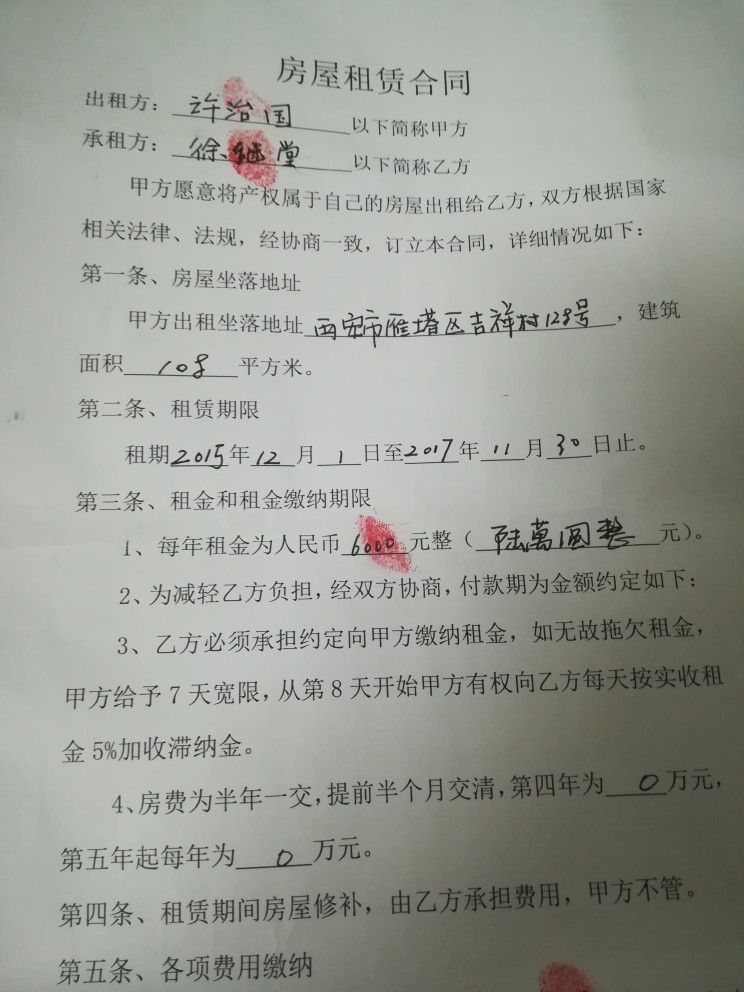 房屋租赁合同
出租方：许治国以下简称甲方
承租方：徐继堂以下简称乙方
甲方愿意将产权属于自己的房屋出租给乙方，双方根据国家
相关法律、法规，经协商一致，订立本合同，详细情况如下：
第一条、房屋坐落地址
甲方出租坐落地址西安市雁塔区吉祥村128号，建筑
面积108平方米。
第二条、租赁期限
租期2015年12月1日至2017年11月30日止。
第三条、租金和租金缴纳期限
1、每年租金为人民币6000元整（陆萬圆整元）。
2、为减轻乙方负担，经双方协商，付款期为金额约定如下：
3、乙方必须承担约定向甲方缴纳租金，如无故拖欠租金，
甲方给予7天宽限，从第8天开始甲方有权向乙方每天按实收租
金5%加收滞纳金。
4、房费为半年一交，提前半个月交清，第四年为0万元，
第五年起每年为0万元。
第四条、租赁期间房屋修补，由乙方承担费用，甲方不管。
第五条、各项费用缴纳